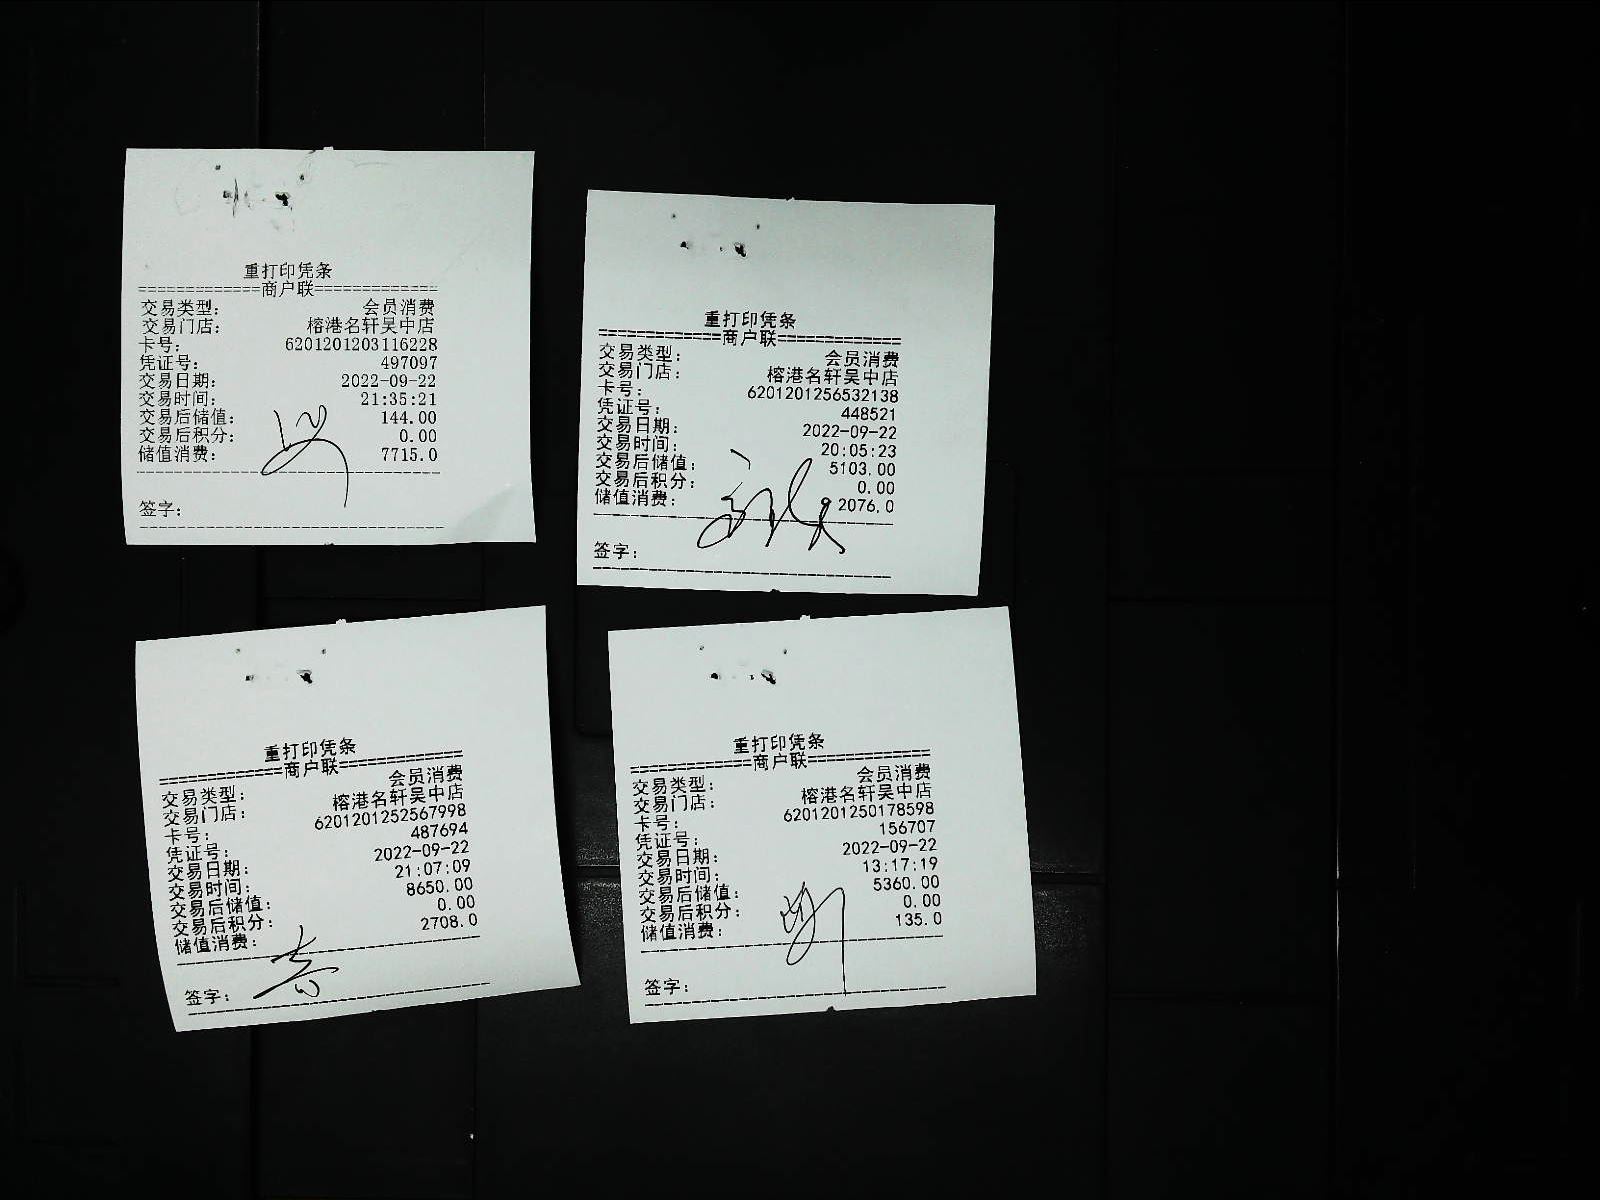 重打印凭条
=============商户联=============
交易类型: 会员消费
交易门店: 榕港名轩吴中店
卡号: 6201201203116228
凭证号: 497097
交易日期: 2022-09-22
交易时间: 21:35:21
交易后储值: 144.00
交易后积分: 0.00
储值消费: 7715.0
签字:
重打印凭条
=============商户联=============
交易类型: 会员消费
交易门店: 榕港名轩吴中店
卡号: 6201201256532138
凭证号: 448521
交易日期: 2022-09-22
交易时间: 20:05:23
交易后储值: 5103.00
交易后积分: 0.00
储值消费: 2076.0
签字:
重打印凭条
=============商户联=============
交易类型: 会员消费
交易门店: 榕港名轩吴中店
卡号: 6201201252567998
凭证号: 487694
交易日期: 2022-09-22
交易时间: 21:07:09
交易后储值: 8650.00
交易后积分: 0.00
储值消费: 2708.0
签字:
重打印凭条
=============商户联=============
交易类型: 会员消费
交易门店: 榕港名轩吴中店
卡号: 6201201250178598
凭证号: 156707
交易日期: 2022-09-22
交易时间: 13:17:19
交易后储值: 5360.00
交易后积分: 0.00
储值消费: 135.0
签字: